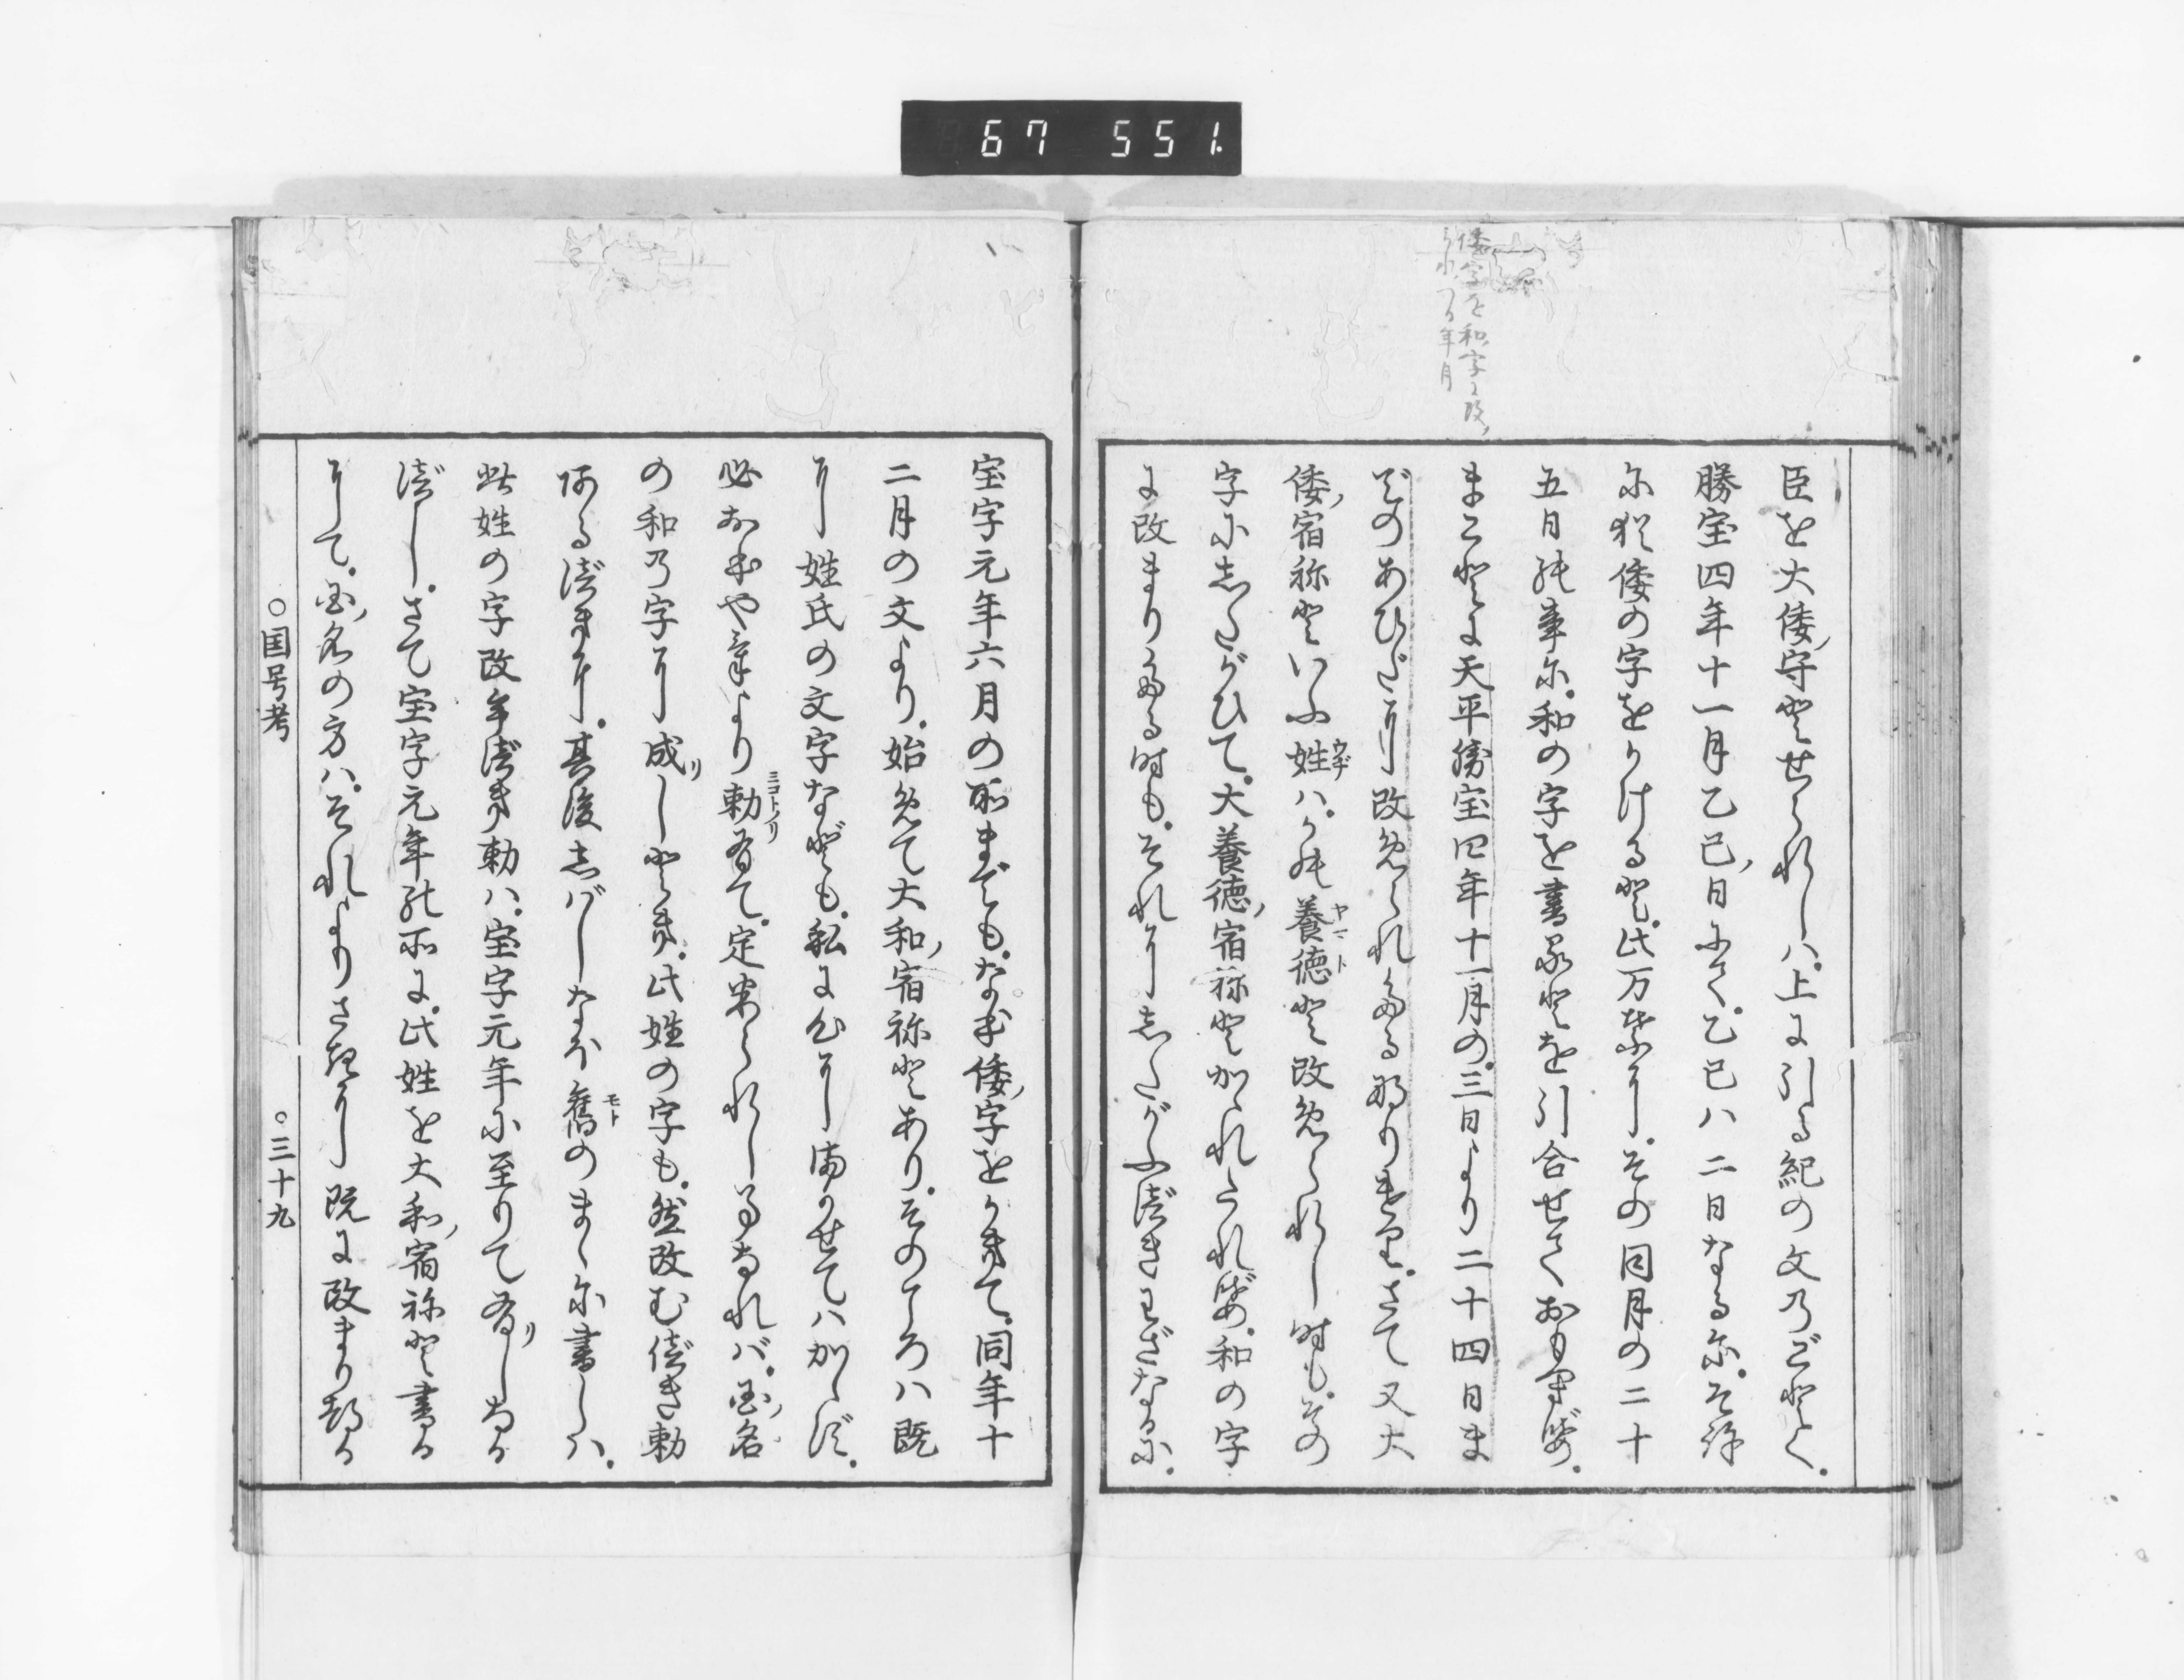 67 551.
倭字を和字に改
年月
臣を大倭守とせられしハ。上に引る紀の文のごとく。
勝宝四年十一月乙巳日にて。乙巳ハ二日なるに。そ
に猶倭の字をかける也。此万葉に。その同月の二十
五日の事に。和の字を書るとを引合せておもへば。
まことに天平勝宝四年十一月の。三日より二十四日ま
でのあひだに改められたるなりけり。さて又大
倭宿祢といふ姓ハ。かの養徳と改められし時も。その
字にしたがひて。大養徳宿祢とかゝれたれば。和の字
に改まりたる時も。それにしたがふべきわざなるに。
宝字元年六月の所までも。なほ倭字をかきて。同年十
二月の文より。始めて大和宿祢とあり。そのころハ既
に姓氏の文字なども。私に心にまかせてハかゝず。
必おほやけより勅有て。定められしことなれバ。国名
の和の字に成しとき。此姓の字も。然改むべき勅
あるべきに。其後しバしなほ舊のまゝに書しハ。
此姓の字改むべき勅ハ。宝字元年に至りて有しなる
べし。さて宝字元年の所に。此姓を大和宿祢と書る
にて。国名の方ハ。それよりさきに既に改まりける
○国号考
○三十九